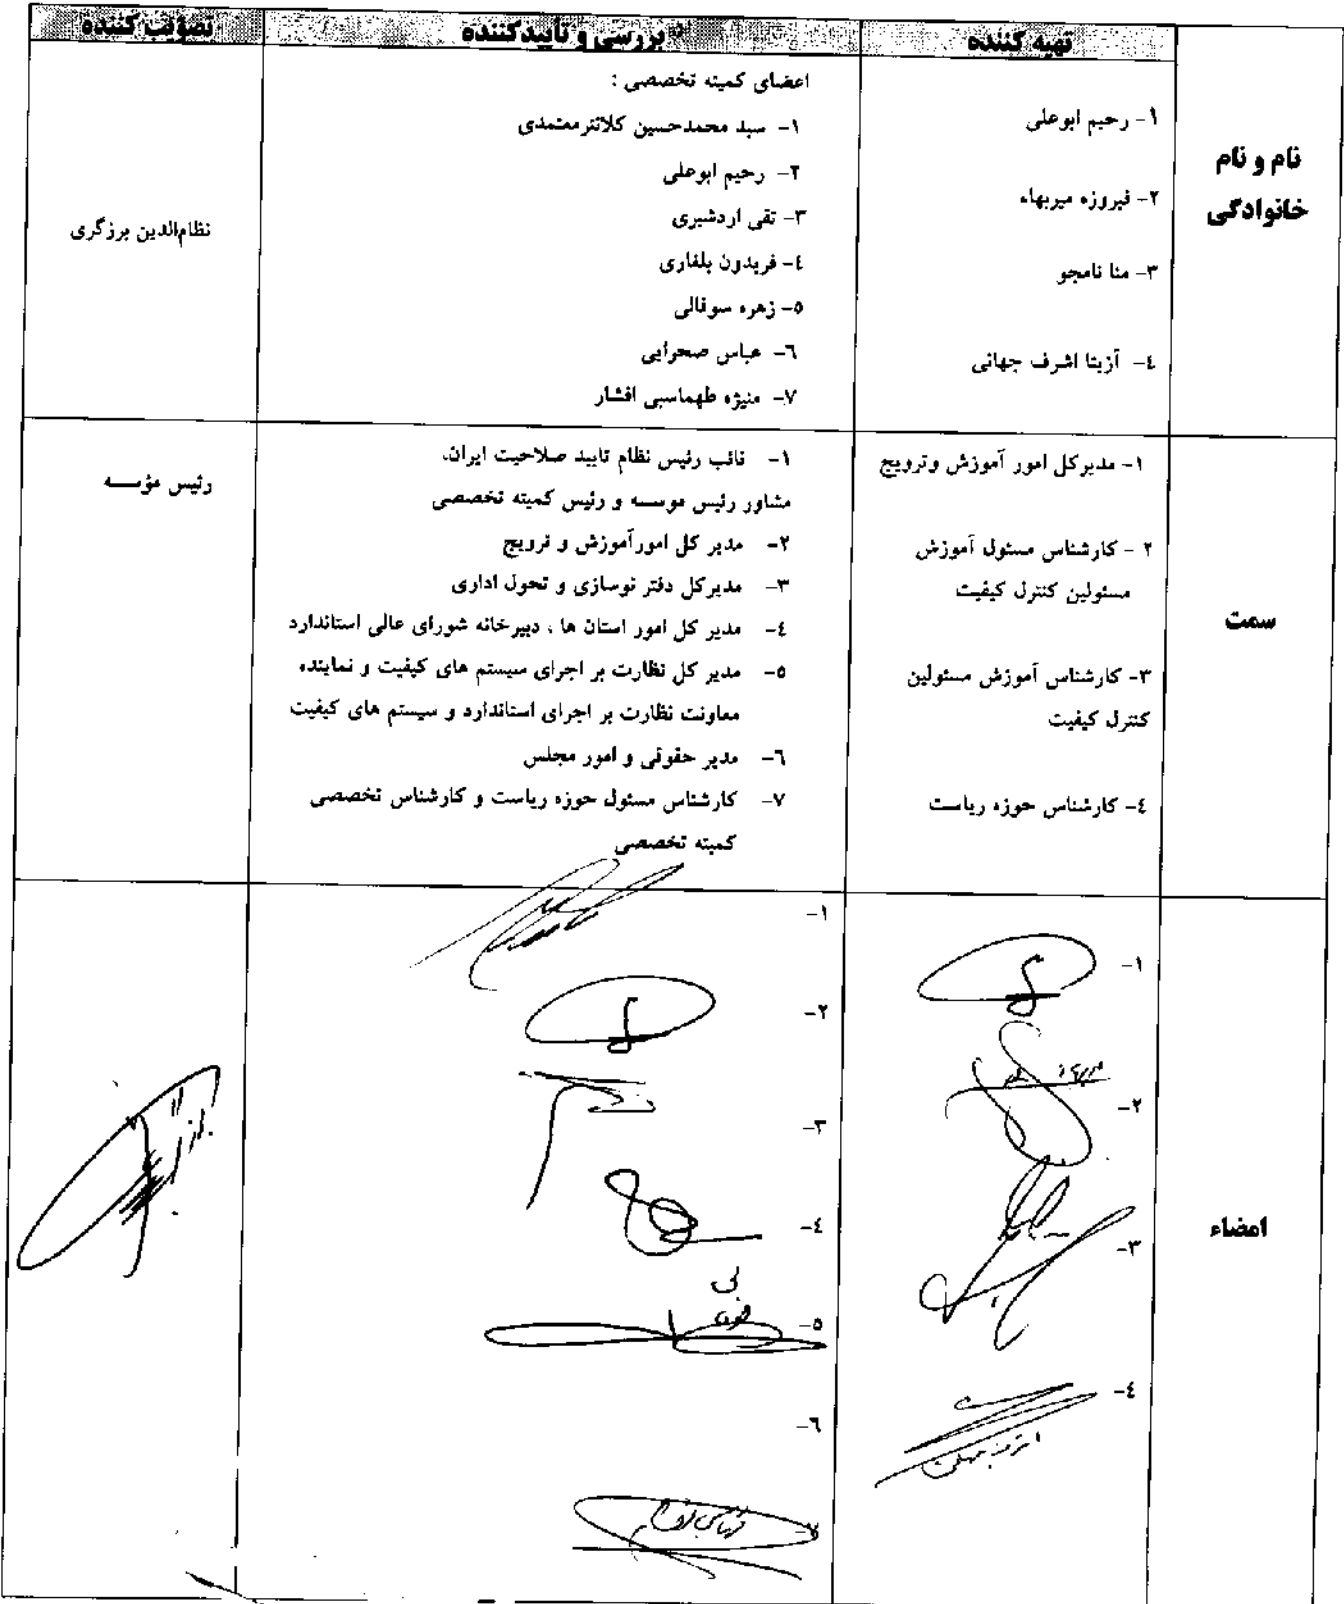 تهیه کننده
بررسی و تأیید کننده
تصویب کننده
نام و نام
خانوادگی
۱- رحیم ابوعلی
۲- فیروزه میربهاء
۳- منا نامجو
٤- آزیتا اشرف جهانی
اعضای کمیته تخصصی :
۱- سید محمدحسین کلانترمعتمدی
۲- رحیم ابوعلی
۳- تقی اردشیری
٤- فریدون بلغاری
٥- زهره سوقالی
٦- عباس صحرایی
۷- منیژه طهماسبی افشار
نظام‌الدین برزگری
سمت
۱- مدیرکل امور آموزش وترویج
۲ - کارشناس مسئول آموزش
مسئولین کنترل کیفیت
۳- کارشناس آموزش مسئولین
کنترل کیفیت
٤- کارشناس حوزه ریاست
۱- نائب رئیس نظام تایید صلاحیت ایران،
مشاور رئیس موسسه و رئیس کمیته تخصصی
۲- مدیر کل امورآموزش و ترویج
۳- مدیرکل دفتر نوسازی و تحول اداری
٤- مدیر کل امور استان ها ، دبیرخانه شورای عالی استاندارد
٥- مدیر کل نظارت بر اجرای سیستم های کیفیت و نماینده
معاونت نظارت بر اجرای استاندارد و سیستم های کیفیت
٦- مدیر حقوقی و امور مجلس
۷- کارشناس مسئول حوزه ریاست و کارشناس تخصصی
کمیته تخصصی
رئیس مؤسسه
امضاء
۱-
۲-
۳-
٤-
۱-
۲-
۳-
٤-
٥-
٦-
۷-